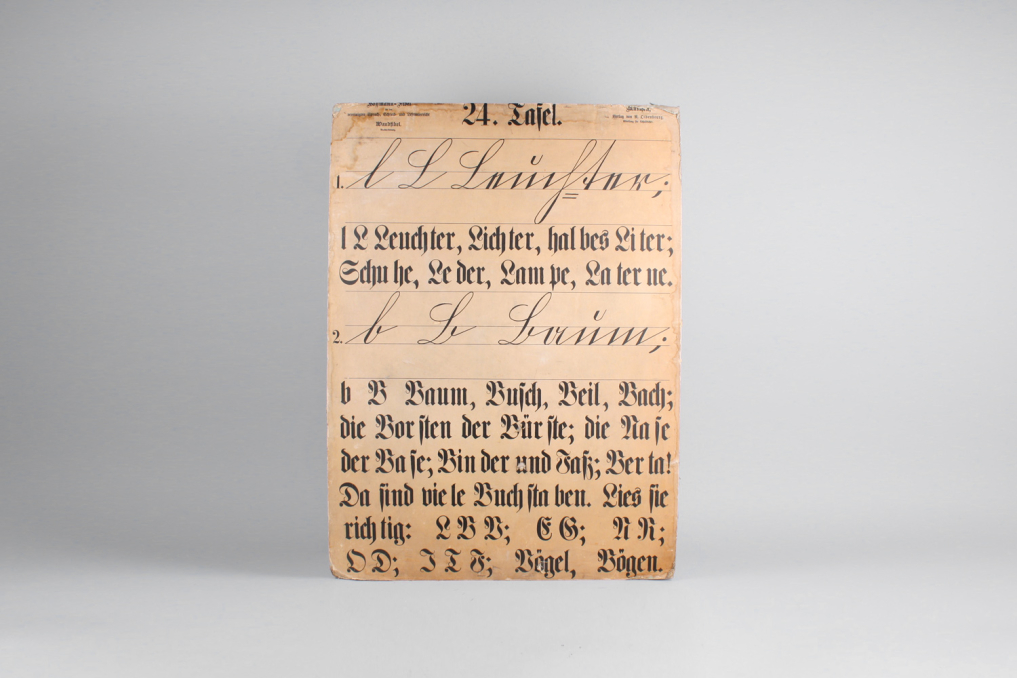 24. Tafel.
1. l L Leuchter;
l L Leuchter, Lich ter, hal bes Li ter;
Schu he, Le der, Lam pe, La ter ne.
2. b B Baum;
b B Baum, Busch, Beil, Bach;
die Bor sten der Bür ste; die Na se
der Ba se; Bin der und Faß; Ber ta!
Da sind vie le Buch sta ben. Lies sie
rich tig: L B V; E G; N R;
O D; I T F; Vögel, Bögen.